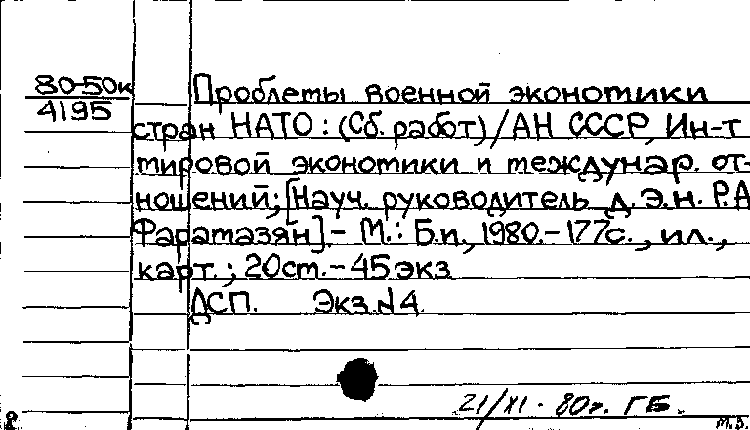 80-50к
4195
Проблемы военной экономики
стран НАТО: (Сб. работ)/АН СССР, Ин-т
мировой экономики и междунар. от-
ношений; [Науч. руководитель д.э.н. Р.А.
Фарамазян].- М.: Б.и., 1980.-177с., ил.,
карт.; 20см.-45экз
ДСП. Экз.№4
21/XI-80г. ГБ.